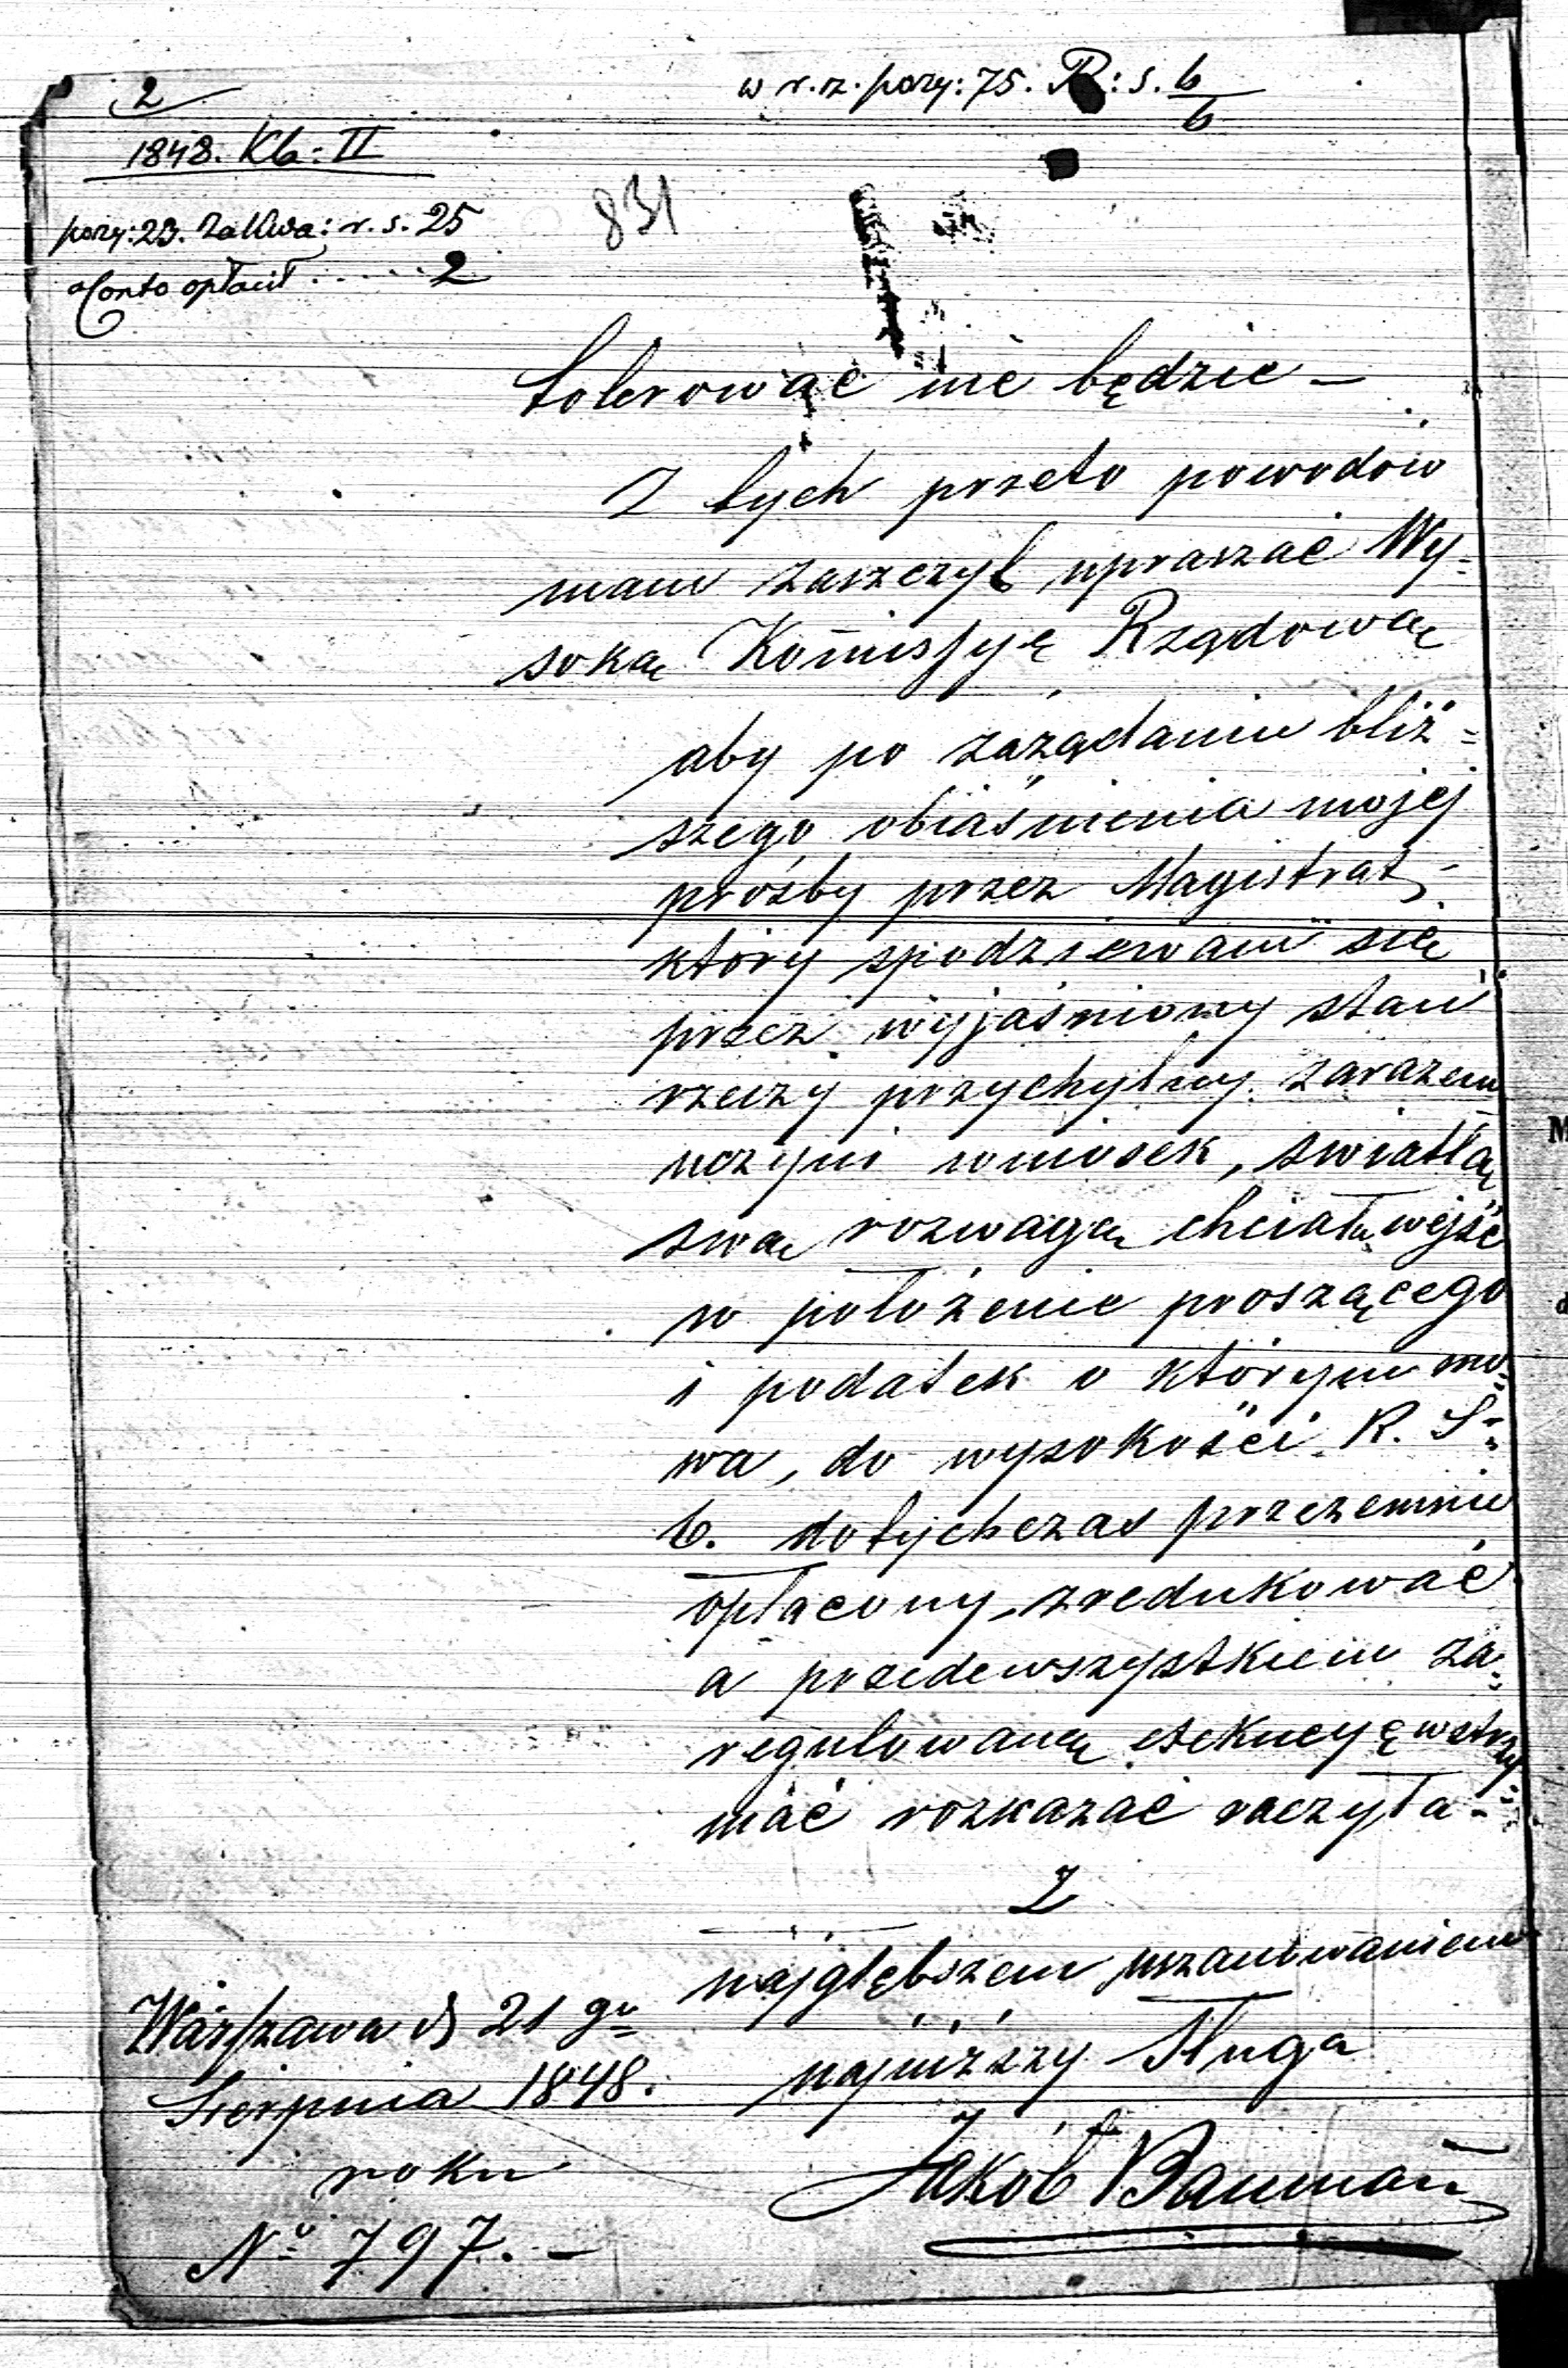 2
w r. z. pozy: 75. R: s. 6/6
1848. Kla: II
pozy: 23. Zalikwa: r. s. 25
a Conto opłacił ..... 2
831
tolerować nie będzie —
Z tych przeto powodów
mam zaszczyt upraszać Wy=
soką Kommissyę Rządową
aby po zażądaniu bliż=
szego obiaśnienia mojej
prośby przez Magistrat,
który spodziewam się
przez wyjaśniony stan
rzeczy przychylny zarazem
uczyni wniosek, światłą
swą rozwagą chciała wejść
w położenie proszącego
i podatek o którym mo=
wa, do wysokości R. S=
6. dotychczas przezemnie
opłacony zredukować
a przedewszystkiem za=
regulowaną exekucyę wstrzy=
mać rozkazać raczyła -
Z
najgłębszem uszanowaniem
najniższy Sługa
Jakób Bauman
Warszawa d 21 go
Sierpnia 1848.
roku
No 797. —